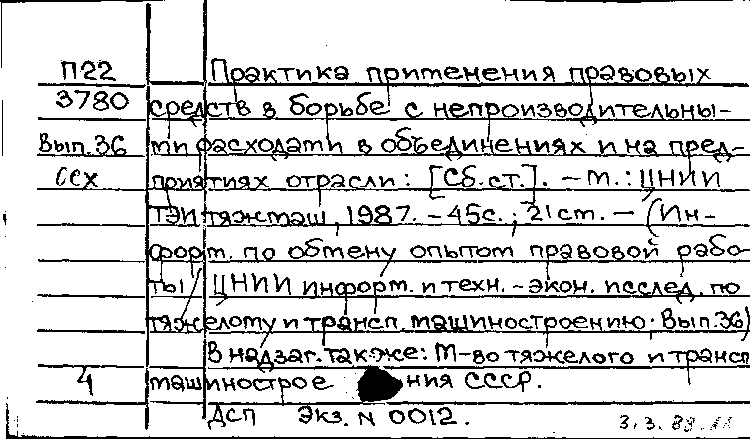 П22 Практика применения правовых
3780 средств в борьбе с непроизводительны-
Вып.36 ми расходами в объединениях и на пред-
ссх приятиях отрасли: [Сб.ст.]. – М.: ЦНИИ
ТЭИтяжмаш, 1987. – 45с.; 21см. – (Ин-
форм. по обмену опытом правовой рабо-
ты / ЦНИИ информ. и техн.-экон. исслед. по
тяжелому и трансп. машиностроению; Вып.36)
В надзаг. также: М-во тяжелого и трансп.
4 машинострое ния СССР.
ДСП Экз. N 0012.